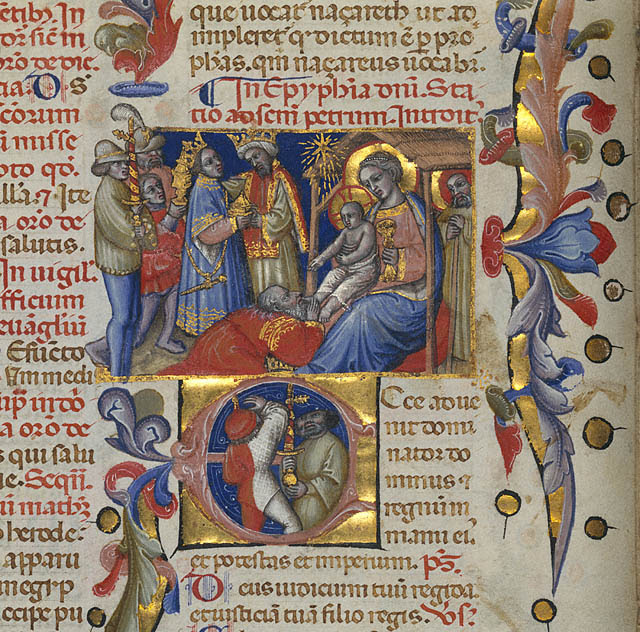 oro de dic.
tia. Ds
corum
ui misse
oto qo.
lla. ⁊. Ite
a oro de
salutis.
In uigil'.
fficium
euāgliū
a oro de
s qui salu
ie. Seqn̄.
o herode:
apparu
in egyp
ccipe pu
que uocat naçareth ut ad
impleret qd dictum ē p pro
phās. qm̄ naçareus uocabr̄.
In Epyphīa dnī. Sta
tio ad scm̄ petrum. Introit'.
Ecce adue
nit domi
nator do
minus ⁊
regnum
in manu ei'.
et potestas et imperium. p̄s.
Deus iudicium tuū regi da.
et iusticiā tuā filio regis. Vs'.